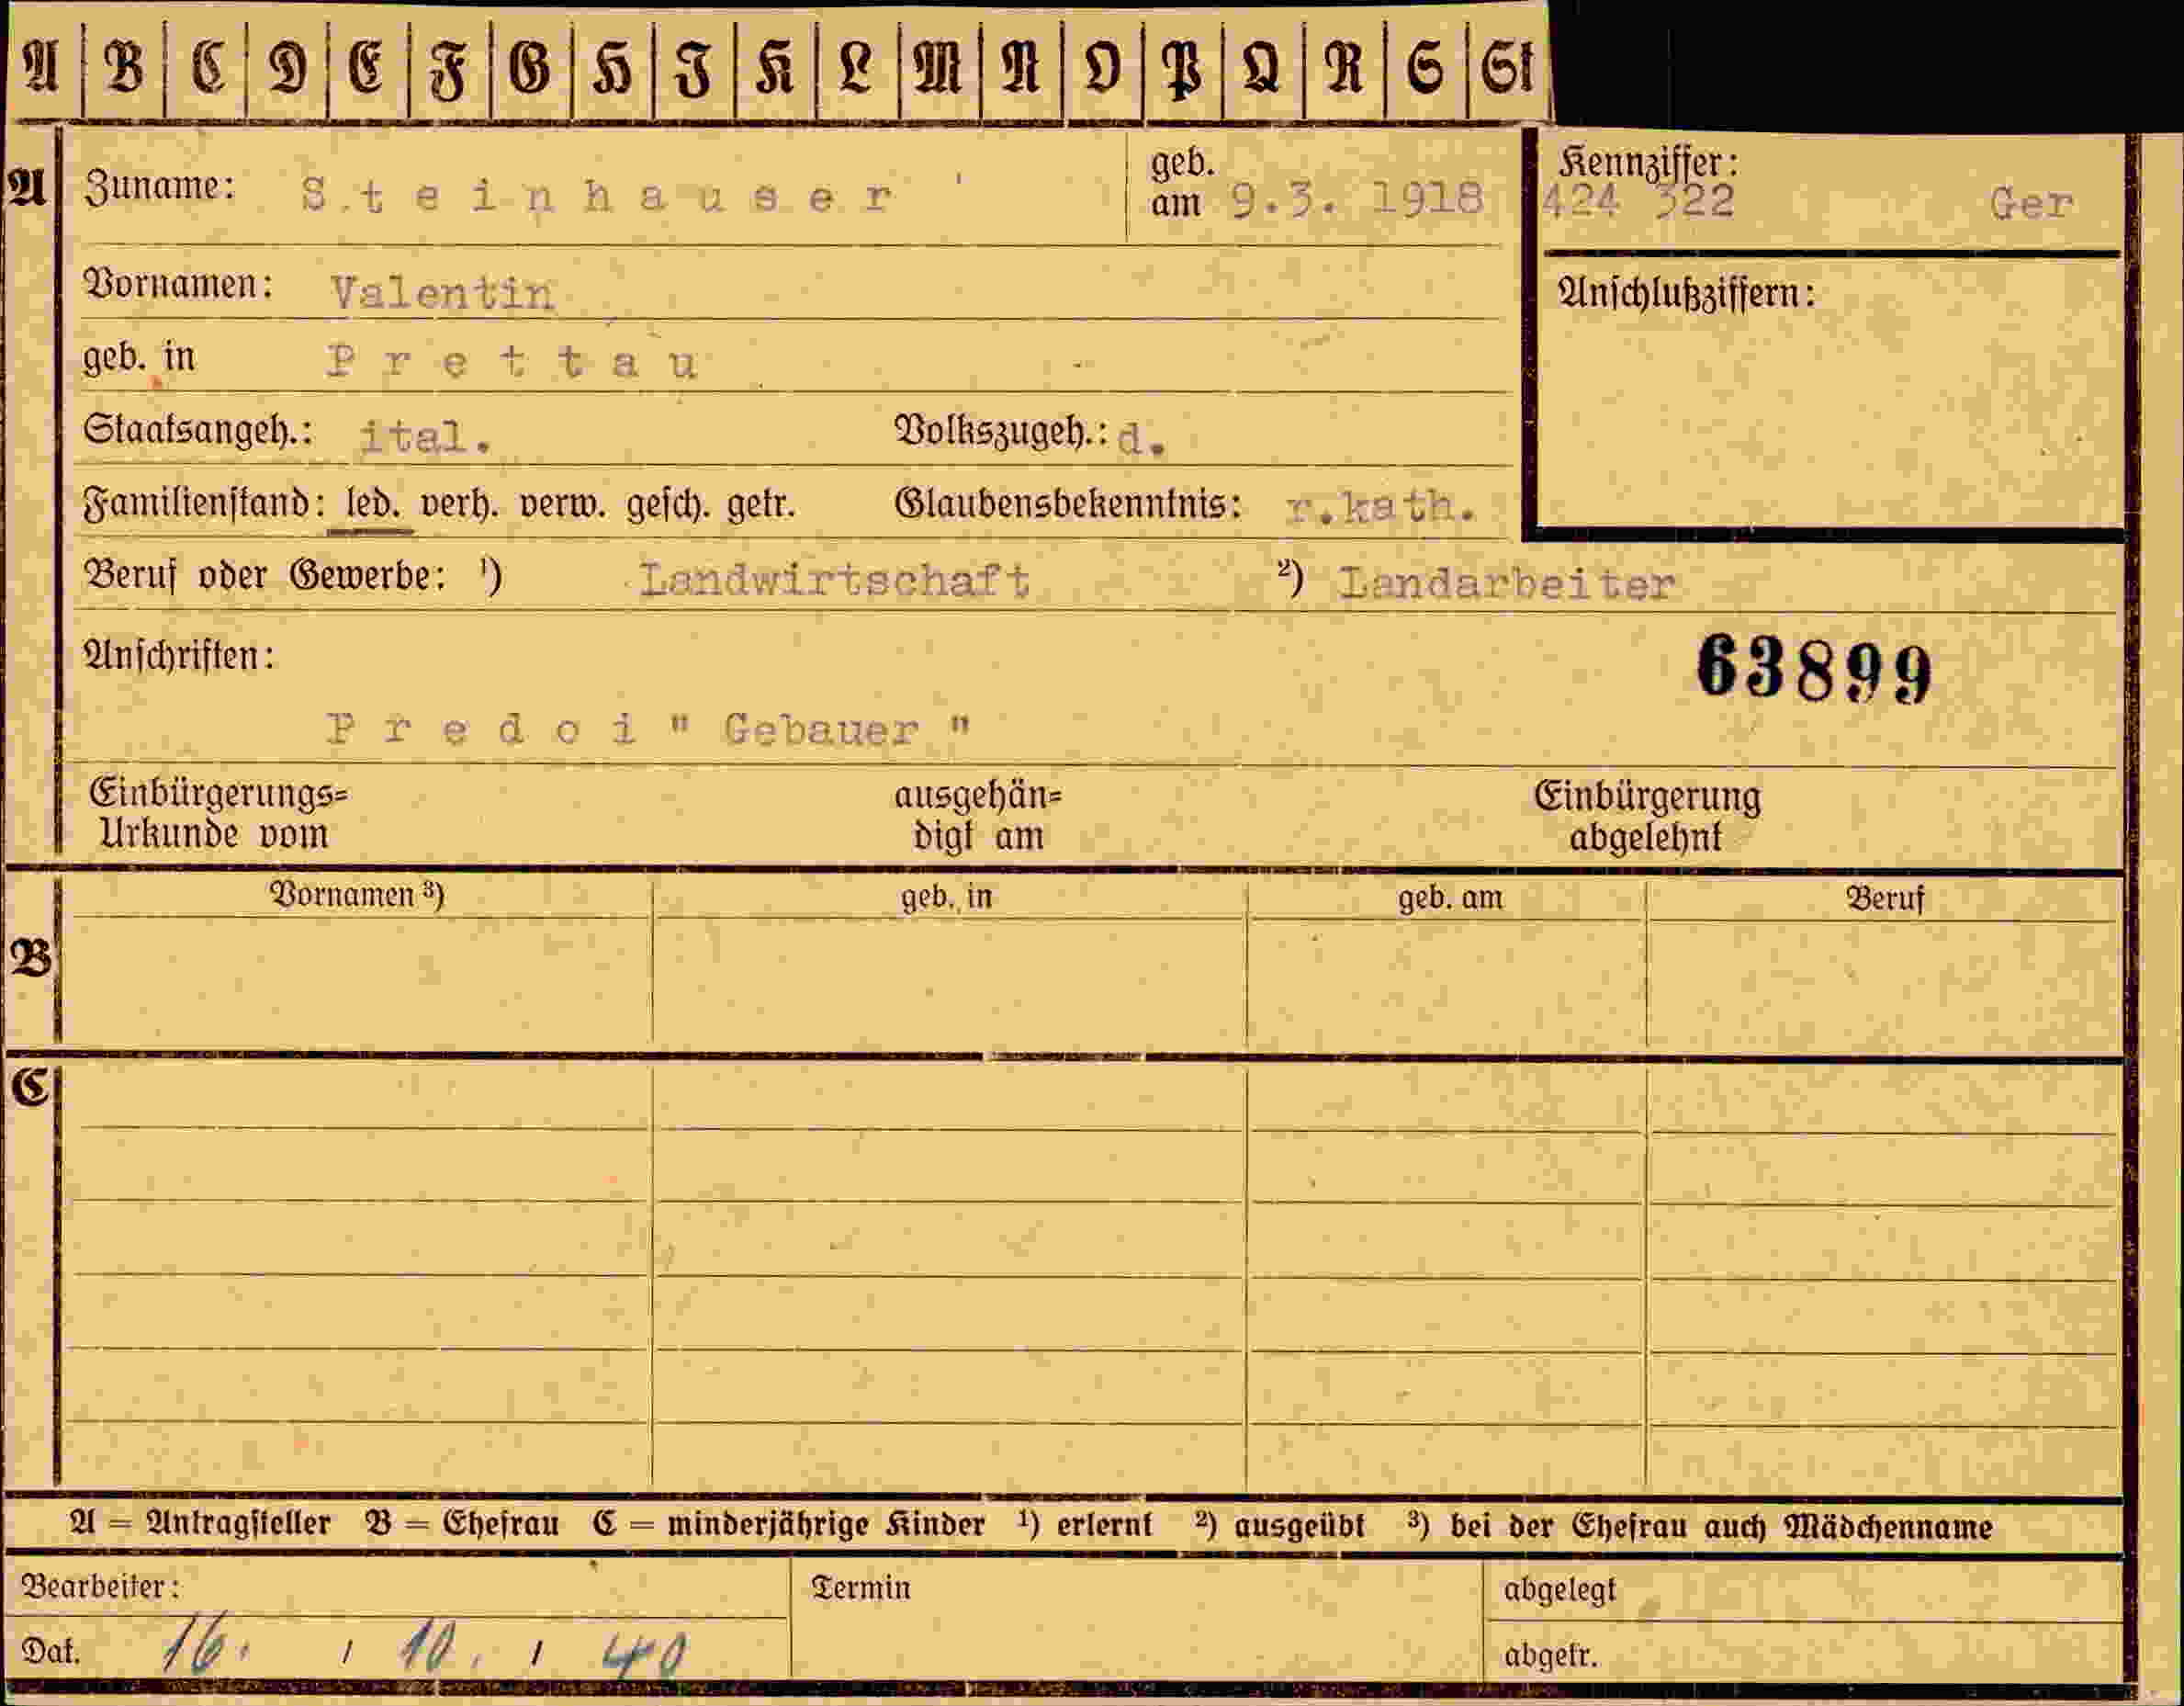 A B C D E F G H I K L M N O P Q R S St
A Zuname: S.teinhauser ' geb. am 9.3. 1918
Kennziffer: 424 322 Ger
Vornamen: Valentin
Anschlußziffern:
geb. in Prettau
Staatsangeh.: ital. Volkszugeh.: d.
Familienstand: led. verh. verw. gesch. getr. Glaubensbekenntnis: r.kath.
Beruf oder Gewerbe: ¹) Landwirtschaft ²) Landarbeiter
Anschriften:
63899
Predoi " Gebauer "
Einbürgerungs= ausgehän= Einbürgerung
Urkunde vom digt am abgelehnt
Vornamen ³) geb. in geb. am Beruf
B
C
A = Antragsteller B = Ehefrau C = minderjährige Kinder ¹) erlernt ²) ausgeübt ³) bei der Ehefrau auch Mädchenname
Bearbeiter: Termin abgelegt
Dat. 16. / 10. / 40 abgetr.